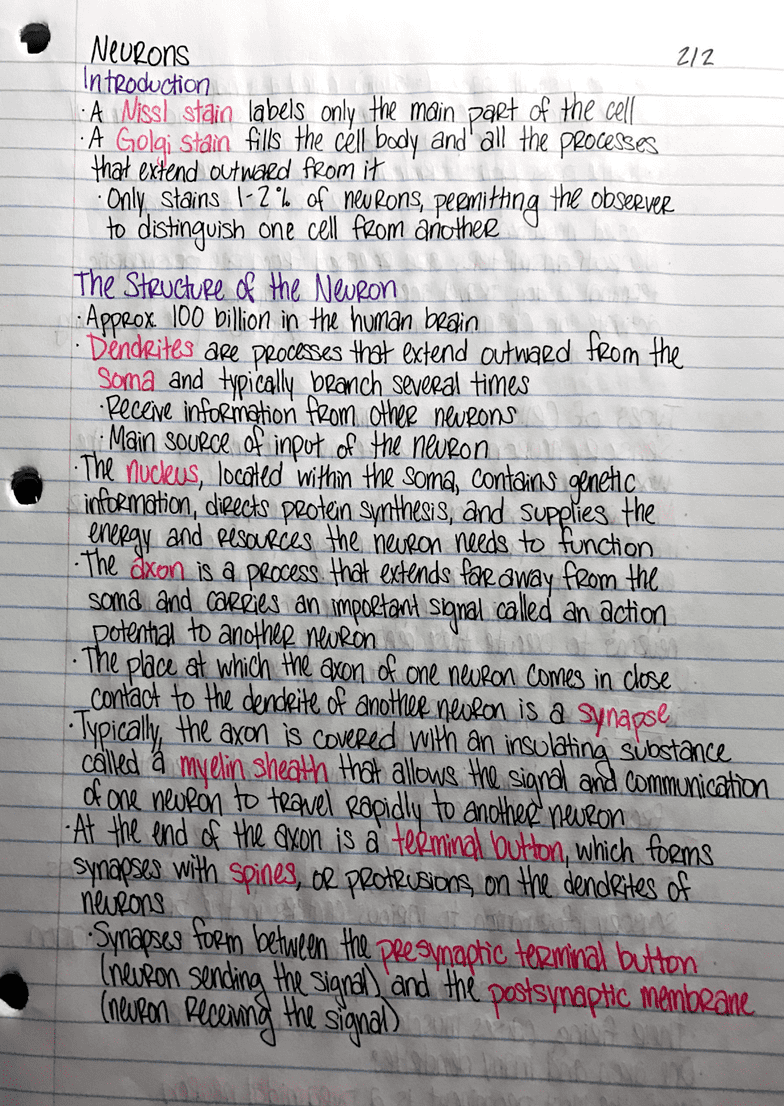 Neurons 2/2
Introduction
· A Nissl stain labels only the main part of the cell
· A Golgi stain fills the cell body and all the processes
that extend outward from it
· Only stains 1-2% of neurons, permitting the observer
to distinguish one cell from another
The Structure of the Neuron
· Approx. 100 billion in the human brain
· Dendrites are processes that extend outward from the
soma and typically branch several times
· Receive information from other neurons
· Main source of input of the neuron
· The nucleus, located within the soma, contains genetic
information, directs protein synthesis, and supplies the
energy and resources the neuron needs to function
· The axon is a process that extends far away from the
soma and carries an important signal called an action
potential to another neuron
· The place at which the axon of one neuron comes in close
contact to the dendrite of another neuron is a synapse
· Typically, the axon is covered with an insulating substance
called a myelin sheath that allows the signal and communication
of one neuron to travel rapidly to another neuron
· At the end of the axon is a terminal button, which forms
synapses with spines, or protrusions, on the dendrites of
neurons
· Synapses form between the presynaptic terminal button
(neuron sending the signal) and the postsynaptic membrane
(neuron receiving the signal)